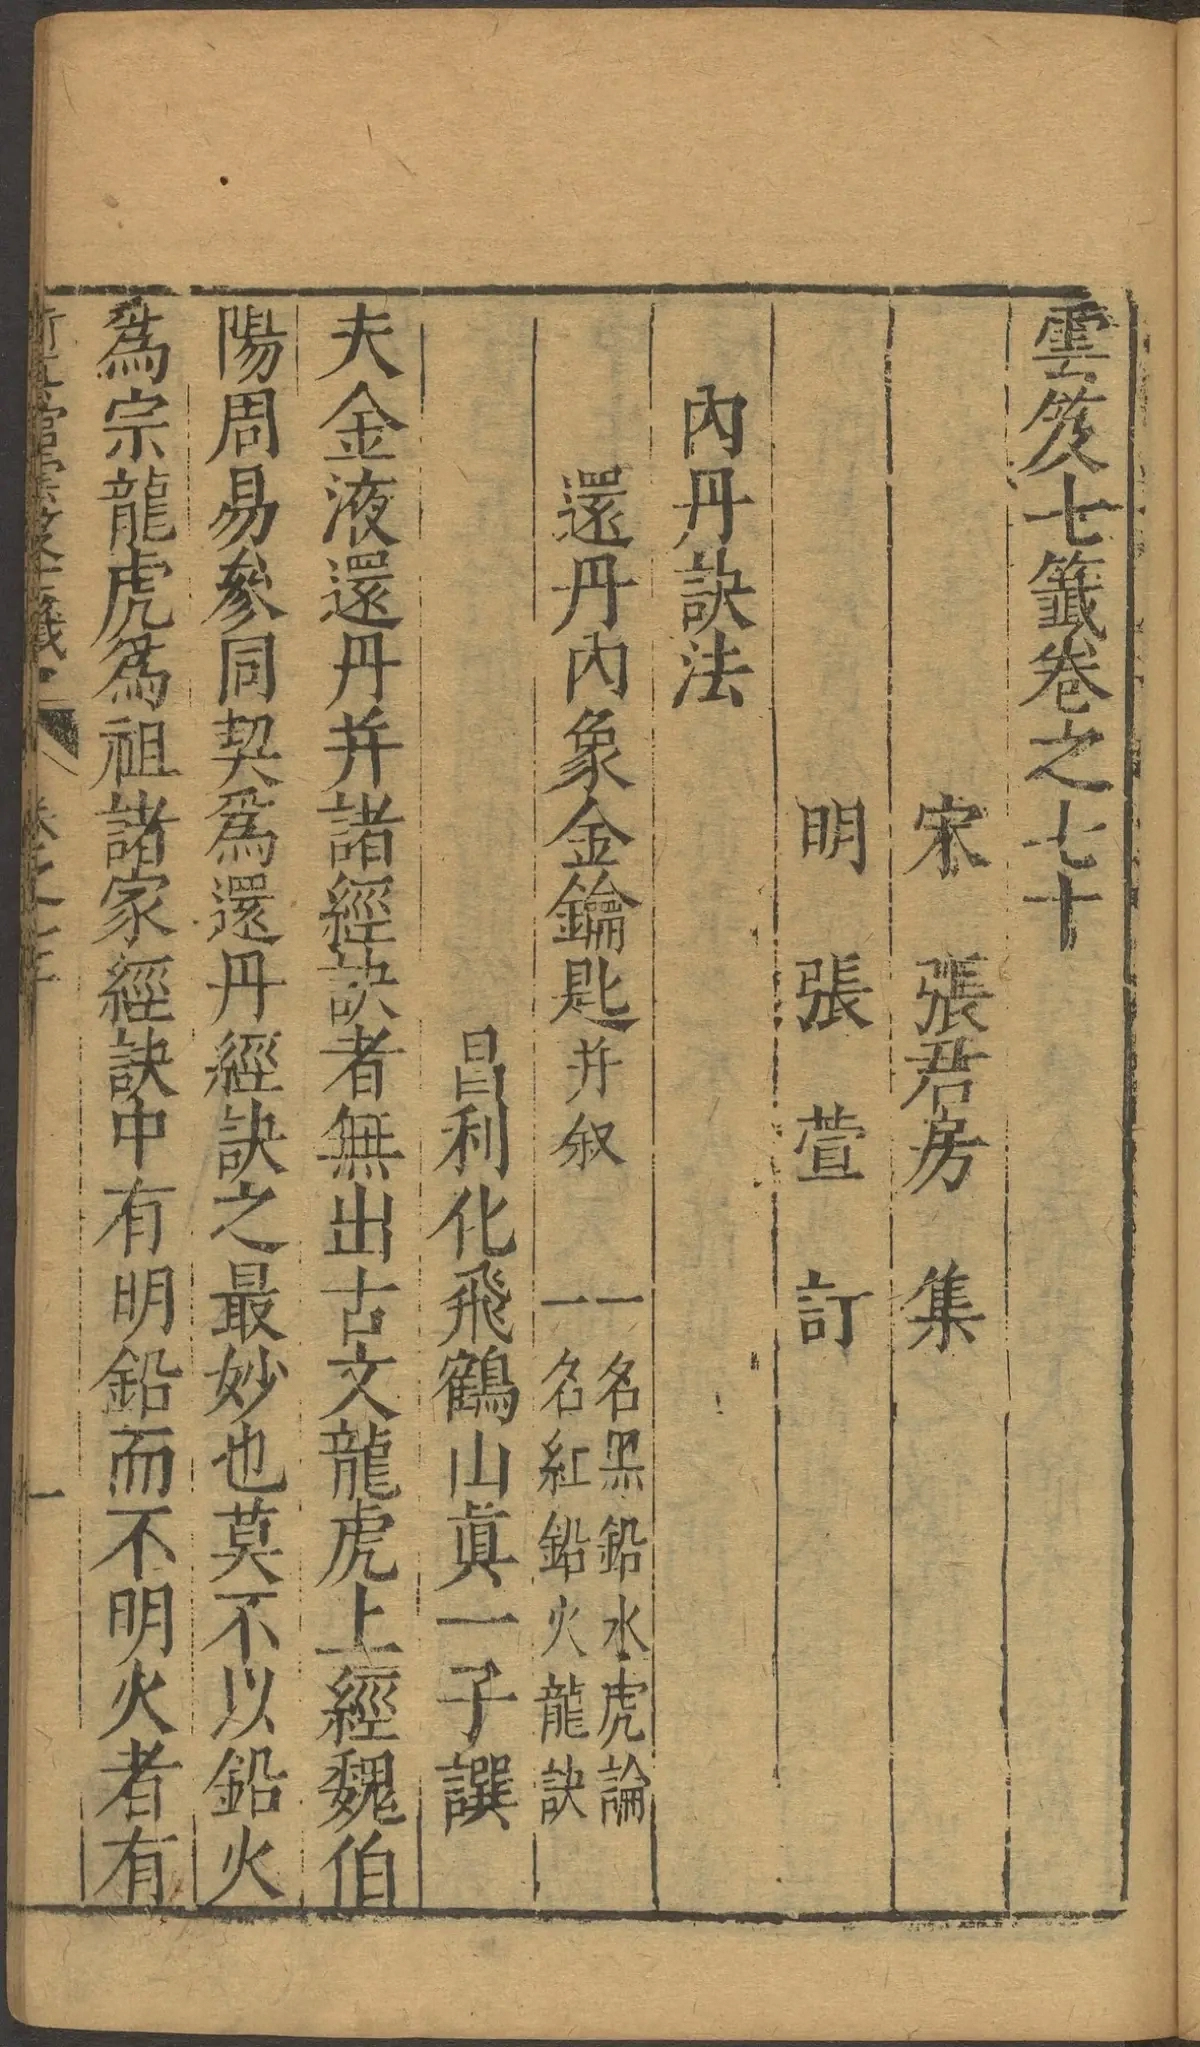 雲笈七籤卷之七十
宋 張君房 集
明 張萱 訂
內丹訣法
還丹內象金鑰匙并叙 一名黑鉛水虎論 一名紅鉛火龍訣
昌利化飛鶴山眞一子譔
夫金液還丹并諸經訣者無出古文龍虎上經魏伯
陽周易參同契爲還丹經訣之最妙也莫不以鉛火
爲宗龍虎爲祖諸家經訣中有明鉛而不明火者有
一